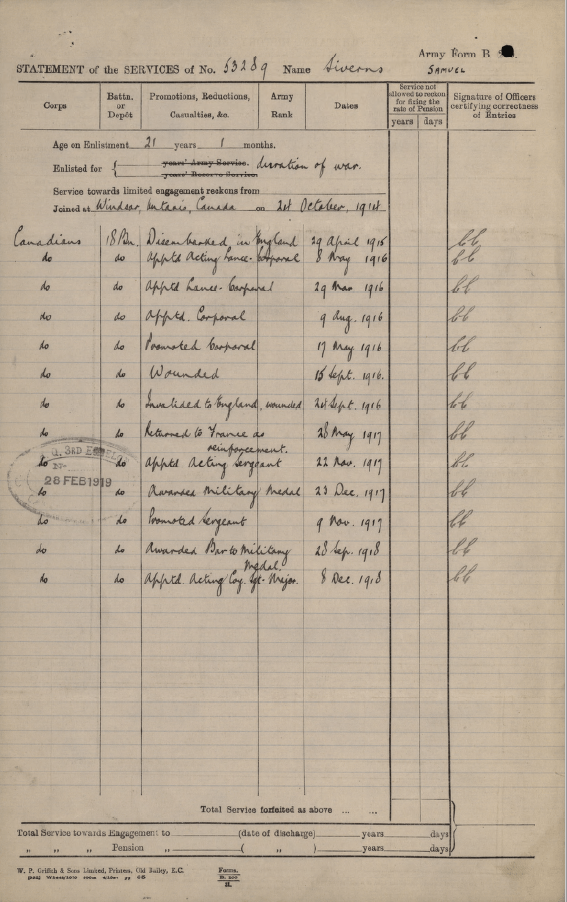 Army Form B
STATEMENT of the SERVICES of No. 53289 Name Siverns
SAMUEL
Corps Battn. or Depôt Promotions, Reductions, Casualties, &c. Army Rank Dates Service not allowed to reckon for fixing the rate of Pension years days Signature of Officers certifying correctness of Entries
Age on Enlistment 21 years 1 months.
Enlisted for { years' Army Service. years' Reserve Service. duration of war.
Service towards limited engagement reckons from
Joined at Windsor, Ontario, Canada on 24 October, 1914
Canadians 18 Bn. Disembarked in England 29 April 1915 bb
do do Apptd Acting Lance-Corporal 8 May 1916 bb
do do Apptd Lance-Corporal 29 Mar 1916 bb
do do Apptd. Corporal 9 Aug. 1916 bb
do do Promoted Corporal 17 May 1916 bb
do do Wounded 15 Sept. 1916. bb
do do Invalided to England, wounded 24 Sept. 1916 bb
do do Returned to France as reinforcement. 28 May 1917 bb
do do Apptd Acting Sergeant 22 Nov. 1917 bb
do do Awarded Military Medal 23 Dec. 1917 bb
do do Promoted Sergeant 9 Nov. 1917 bb
do do Awarded Bar to Military Medal. 28 Sep. 1918 bb
do do Apptd. Acting Coy. Sgt-Major. 8 Dec. 1918 bb
3RD ECHELON
28 FEB 1919
Total Service forfeited as above ... ...
Total Service towards Engagement to (date of discharge) years days
„ „ „ Pension „ ( „ ) years days
W. P. Griffith & Sons Limited, Printers, Old Bailey, E.C.
Forms.